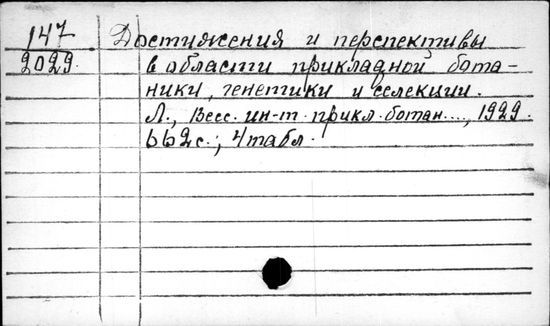 147 Достижения и перспективы
2029 в области прикладной бота-
ники, генетики и селекции.
Л., Весс. ин-т прикл. ботан...., 1929.
662 с.; 4 табл.